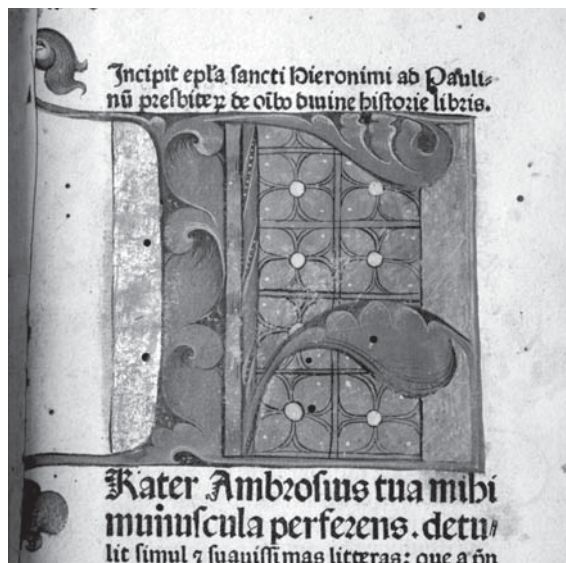 Incipit epl̃a sancti Hieronimi ad Pauli⸗
nũ presbiteꝝ de oĩbꝰ diuine historie libris.
F
Rater Ambrosius tua mihi
munuscula perferens. detu⸗
lit simul ⁊ suauissimas litteras: que a pñ